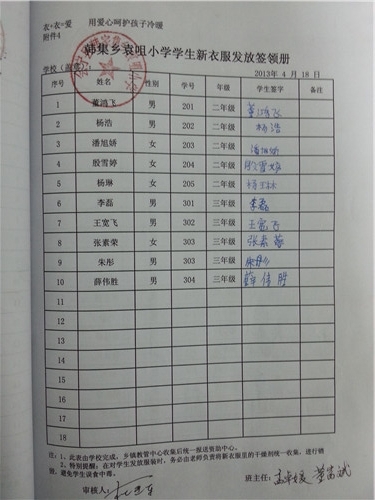 衣+衣=爱 用爱心呵护孩子冷暖
附件4
韩集乡袁咀小学学生新衣服发放签领册
学校（盖章） 2013年 4 月 18 日
序号 姓名 性别 号 年级 学生签字 备注
1 董鸿飞 男 201 二年级 董鸿飞
2 杨浩 男 202 二年级 杨浩
3 潘旭妍 女 203 二年级 潘旭妍
4 殷雪婷 女 204 二年级 殷雪婷
5 杨琳 女 205 二年级 杨琳
6 李磊 男 301 三年级 李磊
7 王宽飞 男 302 三年级 王宽飞
8 张素荣 女 303 三年级 张素荣
9 朱彤 男 303 三年级 朱彤
10 薛伟胜 男 304 三年级 薛伟胜
11
12
13
14
15
16
17
18
注：1、此表由学校完成，乡镇教管中心收集后统一报送资助中心。
2、特别提醒：在对学生发放服装时，务必由老师负责将新衣服里的干燥剂统一收集，进行销
毁，避免学生误食中毒。
审核人： 班主任：